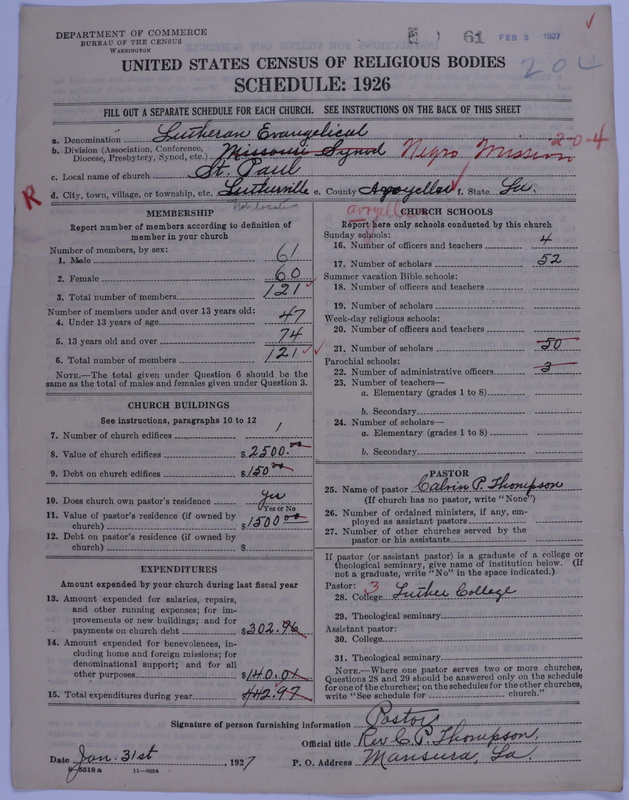 DEPARTMENT OF COMMERCE
BUREAU OF THE CENSUS
WASHINGTON
61 FEB 3 1927
204
UNITED STATES CENSUS OF RELIGIOUS BODIES
SCHEDULE: 1926
FILL OUT A SEPARATE SCHEDULE FOR EACH CHURCH. SEE INSTRUCTIONS ON THE BACK OF THIS SHEET
a. Denomination Lutheran Evangelical 2-0-4
b. Division (Association, Conference, Diocese, Presbytery, Synod, etc.) Missouri Synod Negro Mission
c. Local name of church St. Paul
R
d. City, town, village, or township, etc. Lutherville e. County Avoyelles f. State La.
Not location
Avoyelles
MEMBERSHIP
Report number of members according to definition of
member in your church
Number of members, by sex:
1. Male 61
2. Female 60
3. Total number of members 121
Number of members under and over 13 years old:
4. Under 13 years of age 47
5. 13 years old and over 74
6. Total number of members 121
NOTE.—The total given under Question 6 should be the
same as the total of males and females given under Question 3.
CHURCH BUILDINGS
See instructions, paragraphs 10 to 12
7. Number of church edifices 1
8. Value of church edifices $2500.00
9. Debt on church edifices $150.00
10. Does church own pastor's residence yes
Yes or No
11. Value of pastor's residence (if owned by
church) $1500.00
12. Debt on pastor's residence (if owned by
church) $
EXPENDITURES
Amount expended by your church during last fiscal year
13. Amount expended for salaries, repairs,
and other running expenses; for im-
provements or new buildings; and for
payments on church debt $302.96
14. Amount expended for benevolences, in-
cluding home and foreign missions; for
denominational support; and for all
other purposes $140.01
15. Total expenditures during year $442.97
CHURCH SCHOOLS
Report here only schools conducted by this church
Sunday schools:
16. Number of officers and teachers 4
17. Number of scholars 52
Summer vacation Bible schools:
18. Number of officers and teachers
19. Number of scholars
Week-day religious schools:
20. Number of officers and teachers
21. Number of scholars 50
Parochial schools:
22. Number of administrative officers 3
23. Number of teachers—
a. Elementary (grades 1 to 8)
b. Secondary
24. Number of scholars—
a. Elementary (grades 1 to 8)
b. Secondary
PASTOR
25. Name of pastor Calvin P. Thompson
(If church has no pastor, write "None")
26. Number of ordained ministers, if any, em-
ployed as assistant pastors
27. Number of other churches served by the
pastor or his assistants
If pastor (or assistant pastor) is a graduate of a college or
theological seminary, give name of institution below. (If
not a graduate, write "No" in the space indicated.)
Pastor: 3
28. College Luther College
29. Theological seminary
Assistant pastor:
30. College
31. Theological seminary
NOTE.—Where one pastor serves two or more churches,
Questions 28 and 29 should be answered only on the schedule
for one of the churches; on the schedules for the other churches,
write "See schedule for church."
Signature of person furnishing information Pastor
Official title Rev C. P. Thompson,
Date Jan. 31st, 1927 P. O. Address Mansura, La.
8-5518 a 11-9054